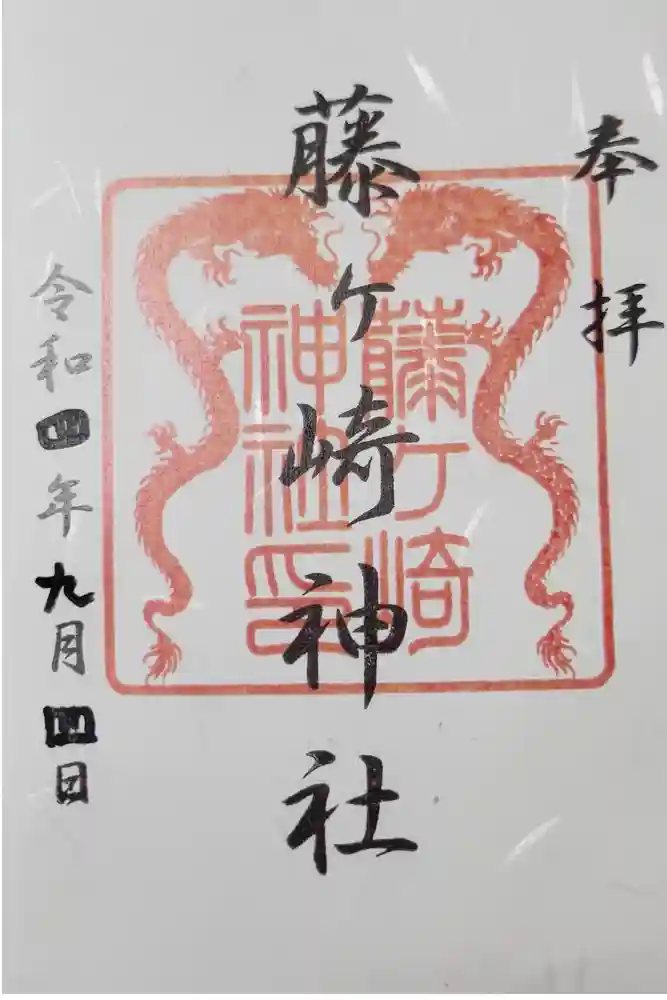 奉拝
藤ヶ崎神社
藤ケ崎
神社印
令和四年九月四日